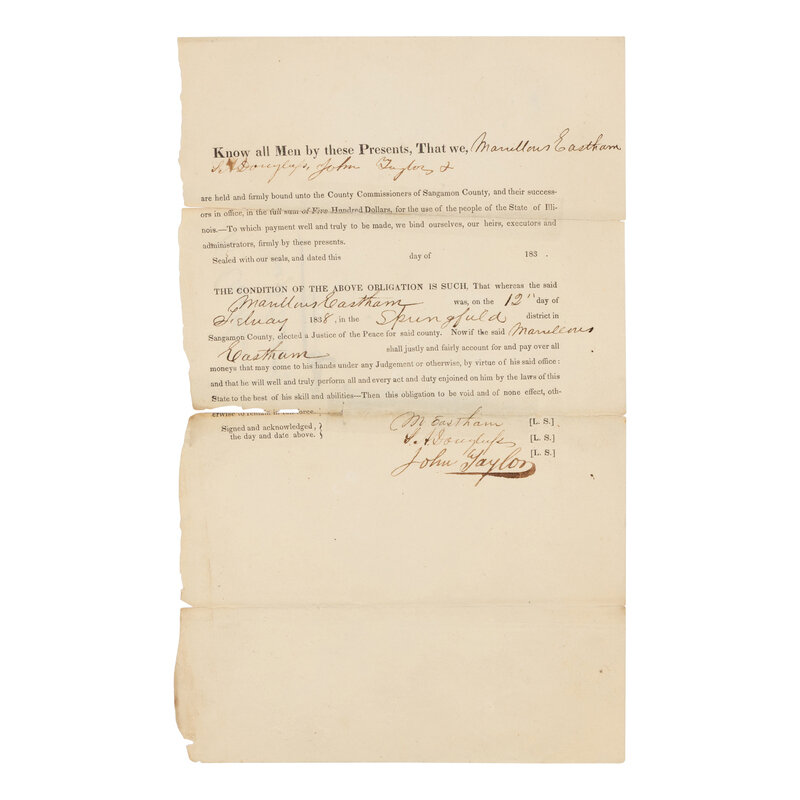 Know all Men by these Presents, That we, Marvellous Eastham
S. A. Douglass, John Taylor &
are held and firmly bound unto the County Commissioners of Sangamon County, and their success-
ors in office, in the full sum of Five Hundred Dollars, for the use of the people of the State of Illi-
nois.—To which payment well and truly to be made, we bind ourselves, our heirs, executors and
administrators, firmly by these presents.
Sealed with our seals, and dated this day of 183 .
THE CONDITION OF THE ABOVE OBLIGATION IS SUCH, That whereas the said
Marvellous Eastham was, on the 12" day of
Febuay 1838. in the Springfield district in
Sangamon County, elected a Justice of the Peace for said county. Now if the said Marvellous
Eastham shall justly and fairly account for and pay over all
moneys that may come to his hands under any Judgement or otherwise, by virtue of his said office:
and that he will well and truly perform all and every act and duty enjoined on him by the laws of this
State to the best of his skill and abilities—Then this obligation to be void and of none effect, oth-
erwise to remain in full force.
Signed and acknowledged, } M Eastham [L. S.]
the day and date above. S. A Douglass [L. S.]
John Taylor [L. S.]